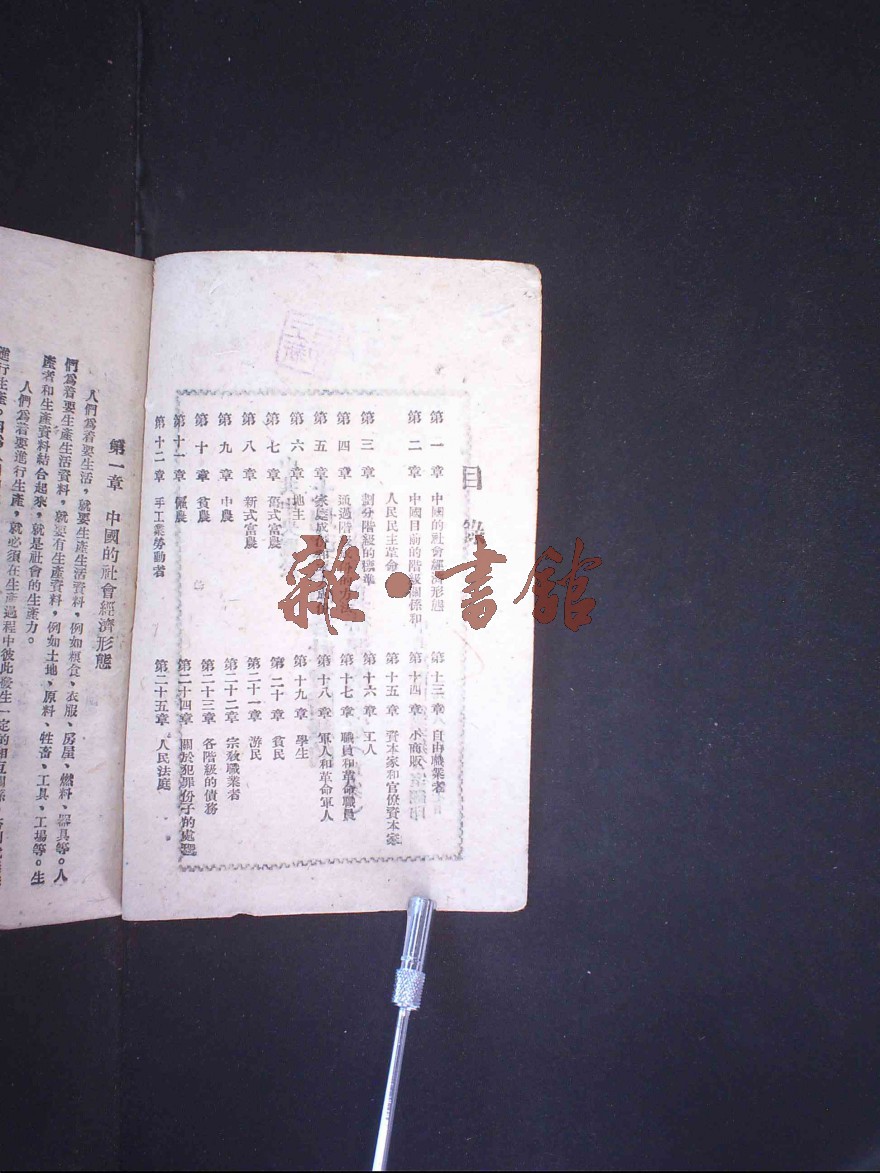 目錄
第一章 中國的社會經濟形態
第二章 中國目前的階級關係和
人民民主革命
第三章 劃分階級的標準
第四章 通過階
第五章 家庭成
第六章 地主
第七章 舊式富農
第八章 新式富農
第九章 中農
第十章 貧農
第十一章 僱農
第十二章 手工業勞動者
第十三章 自由職業者
第十四章 小商販
第十五章 資本家和官僚資本家
第十六章 工人
第十七章 職員和革命職員
第十八章 軍人和革命軍人
第十九章 學生
第二十章 貧民
第二十一章 游民
第二十二章 宗教職業者
第二十三章 各階級的債務
第二十四章 關於犯罪份子的處理
第二十五章 人民法庭
雜·書館
第一章 中國的社會經濟形態
人們為着要生活，就要生產生活資料，例如糧食、衣服、房屋、燃料、器具等。人
們為着要生產生活資料，就要有生產資料，例如土地、原料、牲畜、工具、工場等。生
產者和生產資料結合起來，就是社會的生產力。
人們為着要進行生產，就必須在生產過程中彼此發生一定的相互關係
進行生產。